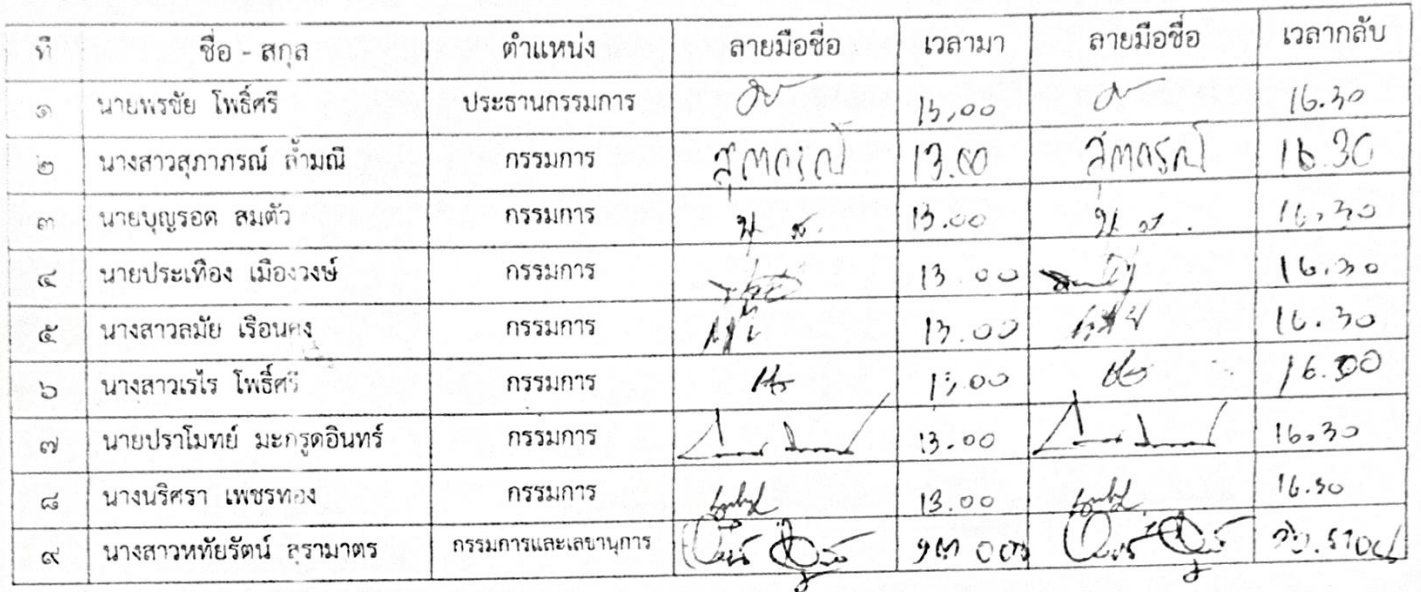 ที่ ชื่อ - สกุล ตำแหน่ง ลายมือชื่อ เวลามา ลายมือชื่อ เวลากลับ
๑ นายพรชัย โพธิ์ศรี ประธานกรรมการ 13.00 16.30
๒ นางสาวสุภาภรณ์ ล้ำมณี กรรมการ สุภาภรณ์ 13.00 สุภาภรณ์ 16.30
๓ นายบุญรอด สมตัว กรรมการ 13.00 16.30
๔ นายประเทือง เมืองวงษ์ กรรมการ 13.00 16.30
๕ นางสาวลมัย เรือนคง กรรมการ 13.00 16.30
๖ นางสาวเรไร โพธิ์ศรี กรรมการ 13.00 16.30
๗ นายปราโมทย์ มะกรูดอินทร์ กรรมการ 13.00 16.30
๘ นางนริศรา เพชรทอง กรรมการ 13.00 16.30
๙ นางสาวหทัยรัตน์ สุรามาตร กรรมการและเลขานุการ